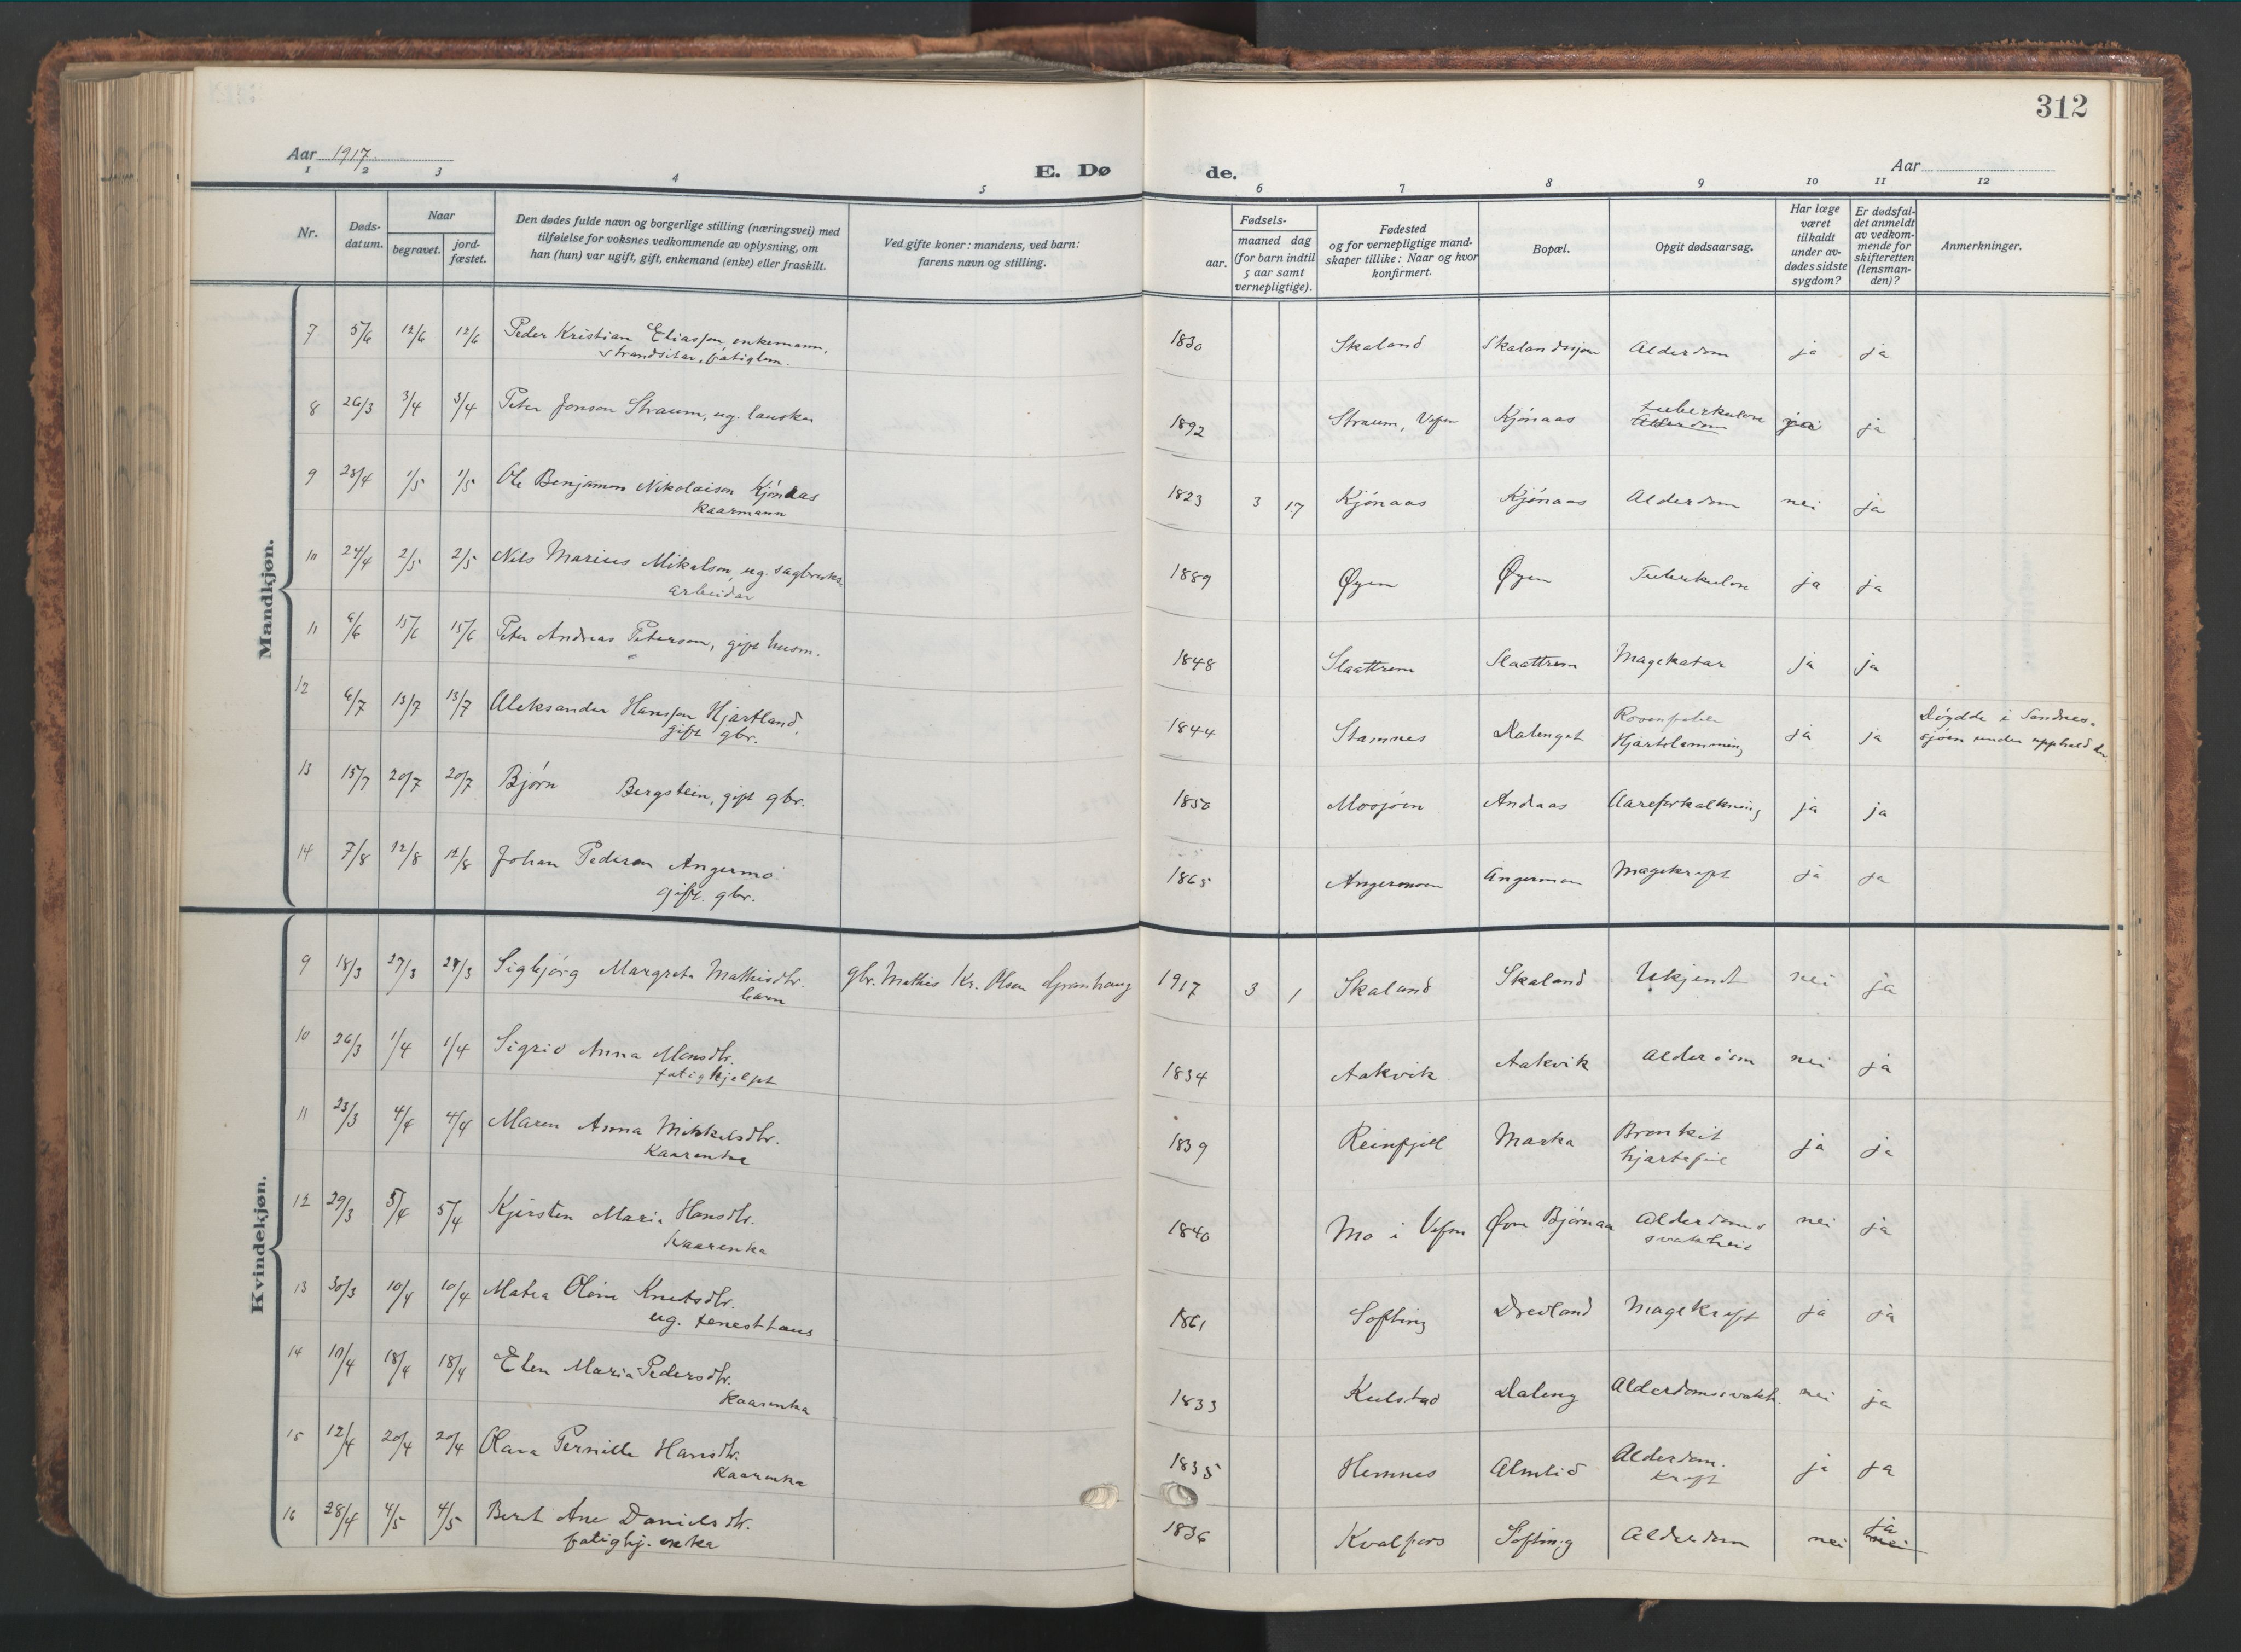 312
Aar 1917.
E. Dø de.
Aar
1 2 3 4 5 6 7 8 9 10 11 12
Nr.
Døds-
datum.
Naar
begravet.
jord-
fæstet.
Den dødes fulde navn og borgerlige stilling (næringsvei) med
tilføielse for voksnes vedkommende av oplysning, om
han (hun) var ugift, gift, enkemand (enke) eller fraskilt.
Ved gifte koner: mandens, ved barn:
farens navn og stilling.
Fødsels-
aar.
maaned dag
(for barn indtil
5 aar samt
vernepligtige).
Fødested
og for vernepligtige mand-
skaper tillike: Naar og hvor
konfirmert.
Bopæl.
Opgit dødsaarsag.
Har læge
været
tilkaldt
under av-
dødes sidste
sygdom?
Er dødsfal-
det anmeldt
av vedkom-
mende for
skifteretten
(lensman-
den)?
Anmerkninger.
Mandkjøn.
7 5/6 12/6 12/6 Peder Kristian Eliassen, enkemann, 1830 Skaland Skalandsjøen Alderdom ja ja
strandsitar, fatiglem.
8 26/3 3/4 3/4 Peter Jonson Straum, ug. lauskar 1892 Straum, Vefsn Kjónaas tuberkulose ja
Alderdom
9 28/4 1/5 1/5 Ole Benjamon Nikolaison Kjónaas 1823 3 17 Kjónaas Kjónaas Alderdom nei ja
Kaarmann
10 24/4 2/5 2/5 Nils Marius Mikalson, ug. sagbruks 1889 Øyen Øyen Tuberkulose ja ja
arbeidar
11 6/6 15/6 15/6 Peter Andreas Peterson, gift husm. 1848 Slaattrem Slaattrem Magekatar ja ja
12 6/7 13/7 13/7 Aleksander Hanssen Hjartland, 1844 Stamnes Dalenget Rosenfeber ja ja Døydde i Sandnes-
gift gbr. Hjartelamming sjøen under upphald der
13 15/7 20/7 20/7 Bjórn Bergstein, gift gbr. 1850 Mosjóen Andaas Aareforkalkning ja ja
14 7/8 12/8 12/8 Johan Pederson Angermo 1865 Angermoen Angermoen Magekreft ja ja
gift. gbr.
Kvindekjøn.
9 18/3 27/3 27/3 Sigbjórg Margreta Mathisdtr. gbr. Mathis Kr. Olsen Granhaug 1917 3 1 Skaland Skaland Ukjendt nei ja
barn
10 26/3 1/4 1/4 Sigrid Anna Monsdtr. 1834 Aakvik Aakvik Alderdom nei ja
fatighjelpt
11 23/3 4/4 4/4 Maren Anna Mikkelsdtr. 1839 Reinfjell Marka Bronkit ja ja
Kaarenka hjartefeil
12 29/3 5/4 5/4 Kjersten Maria Hansdtr. 1840 Mo i Vefsn Øvre Bjórnaa Alderdoms nei ja
Kaarenka svakheit
13 30/3 10/4 10/4 Matea Oline Knutsdtr. 1861 Softing Drevland Magekreft ja ja
ug. tenesttaus
14 10/4 18/4 18/4 Elen Maria Pedersdtr. 1833 Kulstad Daleng Alderdomssvakh. nei ja
Kaarenka
15 12/4 20/4 20/4 Olava Pernille Hansdtr. 1835 Hemnes Almlid Alderdom. ja ja
Kaarenka Kreft
16 28/4 4/5 4/5 Berit Ane Danielsdtr. 1836 Kvalfors Softing Alderdom nei ja
fatighj. enka nei